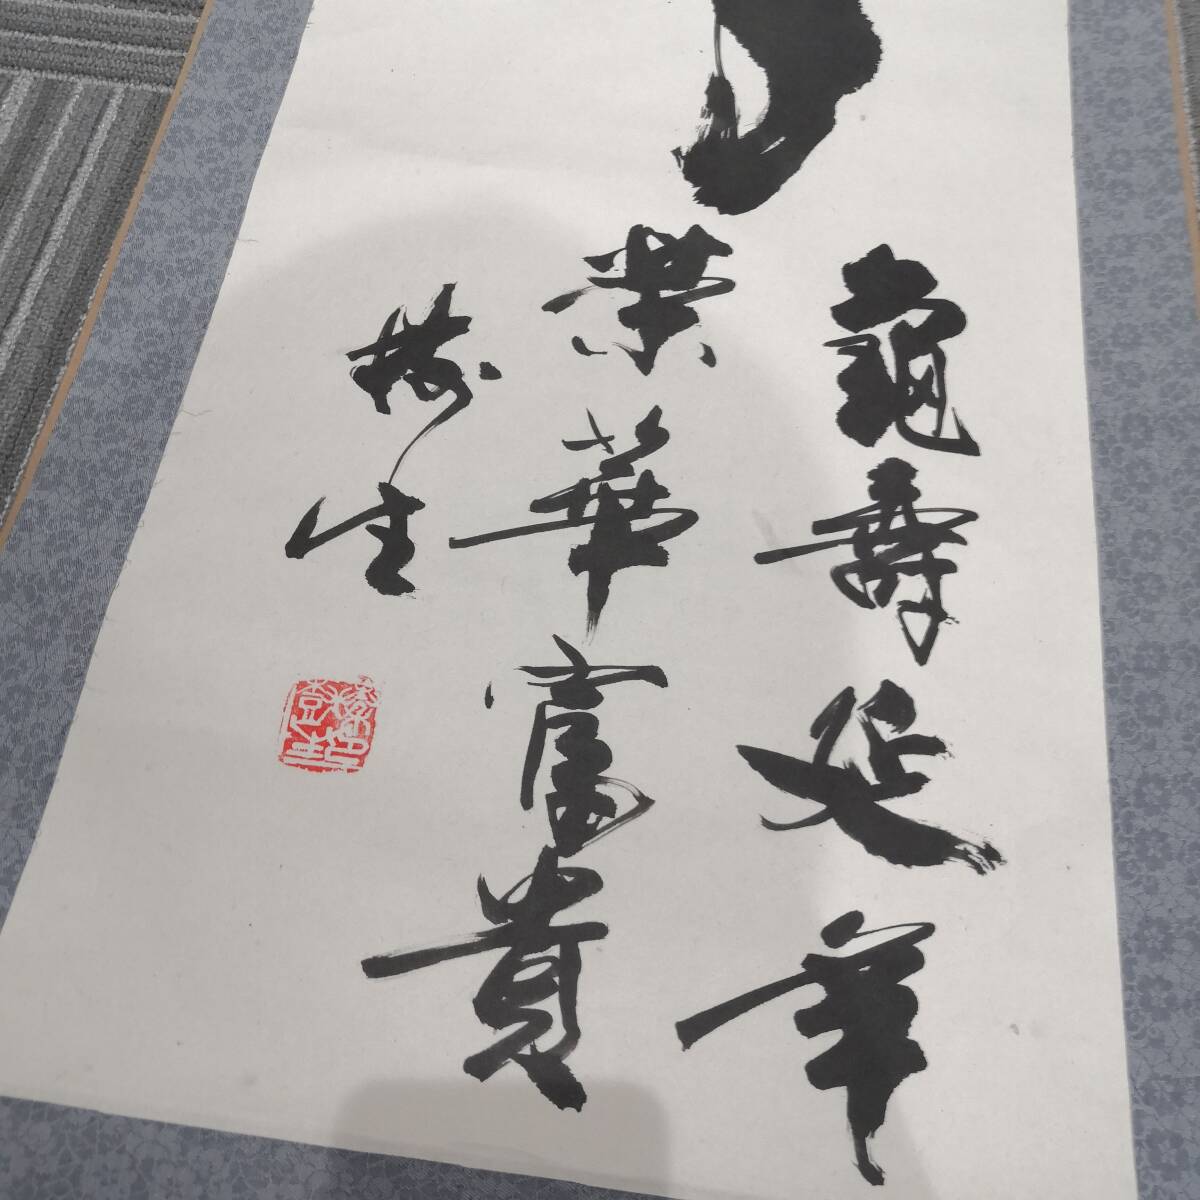 龜壽延年
榮華富貴